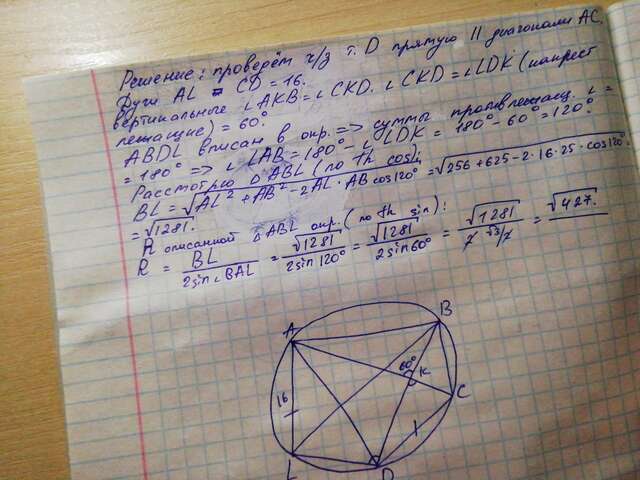 Решение: проведём ч/з т. D прямую || диагонали AC.
Дуги AL = CD = 16.
вертикальные ∠AKB = ∠CKD. ∠CKD = ∠LDK (накрест
лежащие) = 60°.
ABDL вписан в окр. => суммы противлежащ. ∠ =
= 180° => ∠LAB = 180° - ∠LDK = 180° - 60° = 120°
Рассмотрю △ABL (по th cos):
BL = √AL² + AB² - 2AL · AB cos120° = √256 + 625 - 2 · 16 · 25 · cos120° =
= √1281.
R описанной △ABL окр. (по th sin):
R = BL / 2sin∠BAL = √1281 / 2sin120° = √1281 / 2sin60° = √1281 / 2 √3/2 = √427.
A
B
60°
K
C
16
L
D